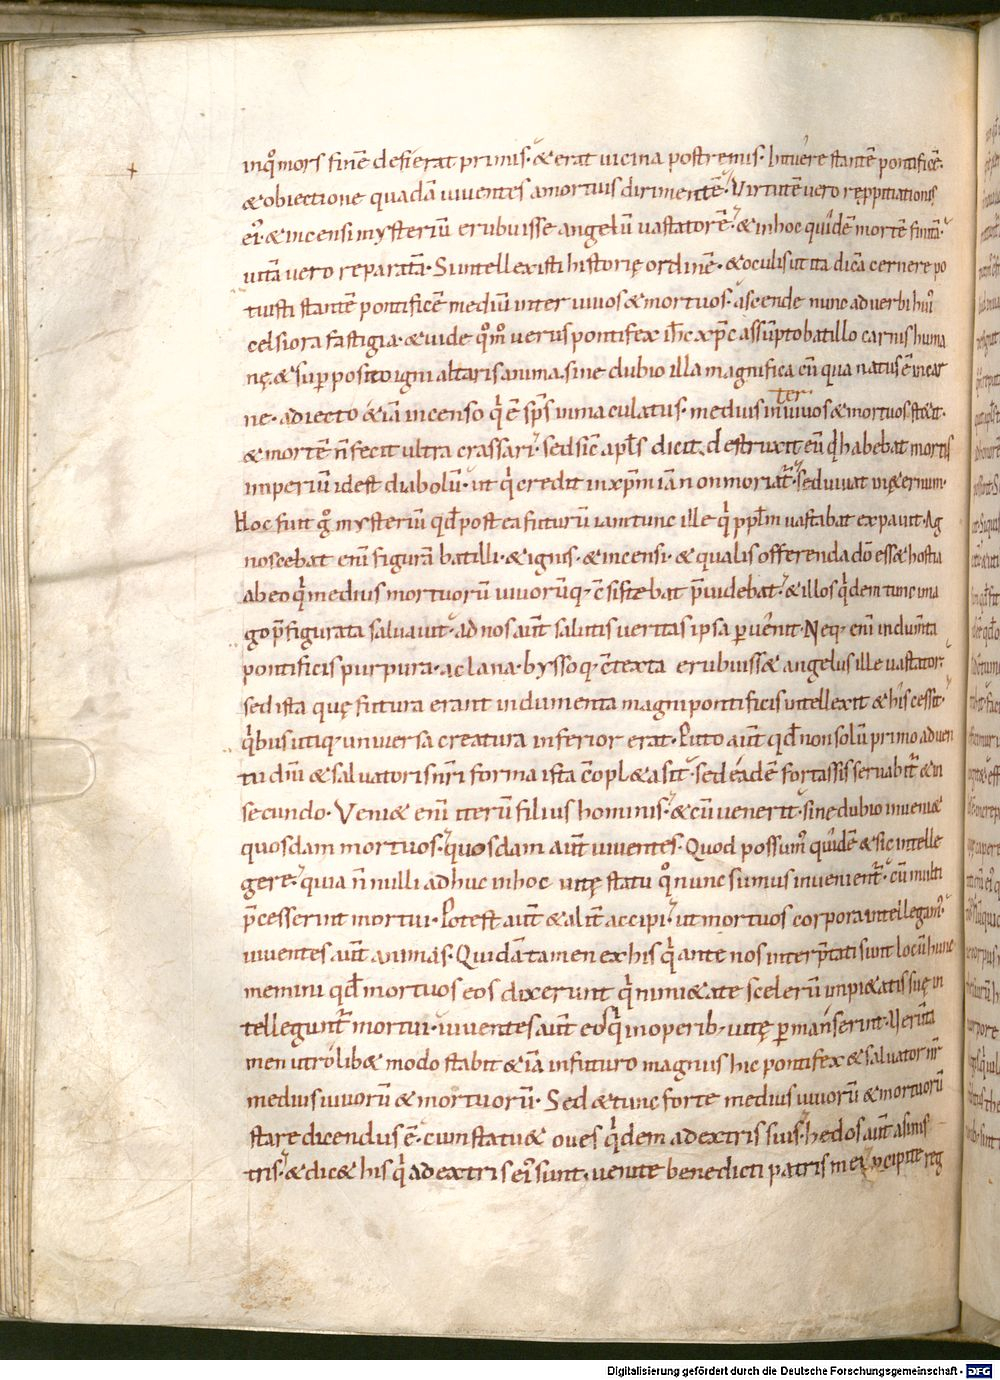 inq̊ mors finē desierat primis· & erat uicina postremis· Intuere stantē pontificē·
& obiectione quadā uiuentes a mortuis dirimentē· Virtutē uero repp̱itiationis
ei᾽· & incensi mysteriū erubuisse angelū uastatorē· & in hoc quidē mortē finitā·
uitā uero reparatā· Si intellexisti historię ordinē· & oculis ut ita dicā cernere po
tuisti stantē pontificē mediū inter uiuos & mortuos· ascende nunc ad uerbi hui᾽
celsiora fastigia· & uide q̊m̊ uerus pontifex ih̄c xp̄c assūpto batillo carnis huma
nę· & sup̱ posito igni altaris anima· sine dubio illa magnifica cū qua natus ē in car
ne· adiecto & iā incenso q' ē sp̄s inmaculatus· medius inter uiuos & mortuos st&it·
& mortē n̄ fecit ultra crassari· sed sic̄ apl̄s dicit· destruxit eū q' habebat mortis
imperiū id est diabolū· ut q' credit in xp̄m iā non moriat᾽· sed uiuat in &ernum·
Hoc fuit g̊ mysteriū qd̄ postea futurū iam tunc ille q' pp̄lm uastabat expauit· Ag
noscebat eni᾽ figurā batilli· & ignis· & incensi· & qualis offerenda dō ess& hostia
ab eo q' medius mortuorū uiuorūq; c̄sistebat p̄uidebat· & illos q'dem tunc ima
go p̄figurata saluauit· ad nos aūt salutis ueritas ipsa p̱uenit· Neq; eni᾽ indum̄ta
pontificis purpura· ac lana· byssoq; c̄texta erubuiss& angelus ille uastator·
sed ista quę futura erant indumenta magni pontificis intellexit & his cessit·
q'bus utiq; uniuersa creatura inferior erat· Puto aūt qd̄ non solū primo aduen
tu dn̄i & saluatoris nr̄i forma ista c̄opl&a sit· sed éadē fortassis seruabit᾽ & in
secundo· Veni& eni᾽ iterū filius hominis· & cū uenerit· sine dubio inueni&
quosdam mortuos· quosdam aūt uiuentes· Quod possum᾽ quidē & sic intelle
gere· quia n̄nulli adhuc in hoc uitę statu q̊ nunc sumus inuenient᾽· cū multi
p̄cesserint mortui· Potest aūt & alit̄ accipi· ut mortuos corpora intellegam᾽·
uiuentes aūt animas· Quidā tamen ex his q' ante nos interp̄tati sunt locū hunc
memini qd̄ mortuos eos dixerunt q' nimi&ate scelerū impi&atis suę in
telligunt᾽ mortui· uiuentes aūt eos q' in operib; uitę p̱manserint· Verūta
men utrolib& modo stabit & iā in futuro magnus hic pontifex & saluator nr̄
medius uiuorū & mortuorū· Sed & tunc forte medius uiuorū & mortuorū
stare dicendus ē· cum statu& oues q'dem ad extris suis· hedos aūt a sinis
tris· & dic& his q' ad extris ei᾽ sunt· uenite benedicti patris mei· p̱cipite reg
Digitalisierung gefördert durch die Deutsche Forschungsgemeinschaft - DFG